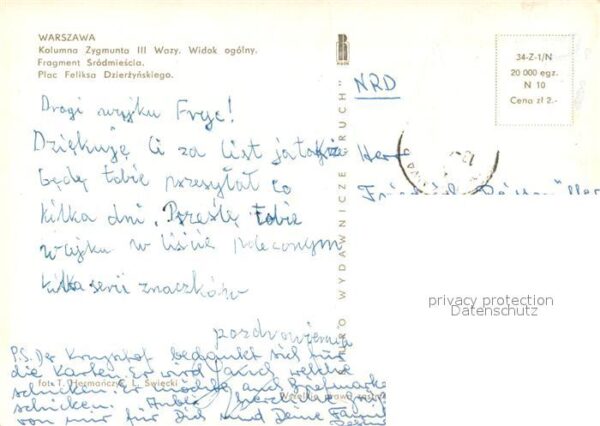 WARSZAWA
Kolumna Zygmunta III Wazy. Widok ogólny.
Fragment Śródmieścia.
Plac Feliksa Dzierżyńskiego.
Drogi wujku Fryc!
Dziękuję Ci za list ja także
będę tobie przesyłał co
kilka dni. Prześlę tobie
wujku w liście poleconym
kilka serii znaczków
pozdrowienia
P.S. Der Krzysztof bedankt sich für
die Karten. Er wird auch welche
schicken. Er möchte auch Briefmarken
schicken. herzliche
von mir für Dich und Deine
fot. T. Hermańczyk, L. Święcki
BIURO WYDAWNICZE „RUCH”
RUCH
34-Z-1/N
20 000 egz.
N 10
Cena zł 2.-
NRD
Herr
privacy protection
Datenschutz